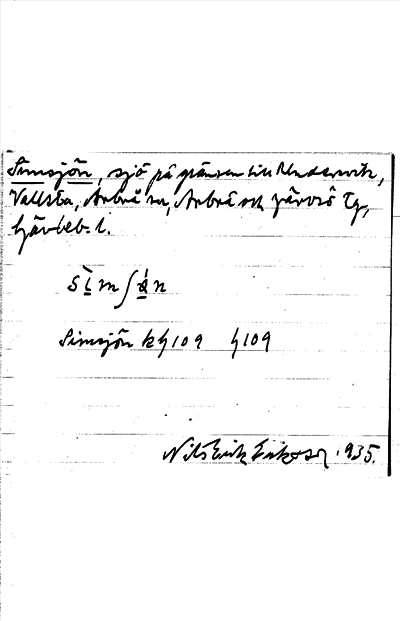 Simsjön, sjö på gränsen till Undersvik,
Vallsta, Arbrå sn, Arbrå och Järvsö Tg,
Gävleb. l.
Simsjön kh109 h109
Nils Erik Eriksson 1935.